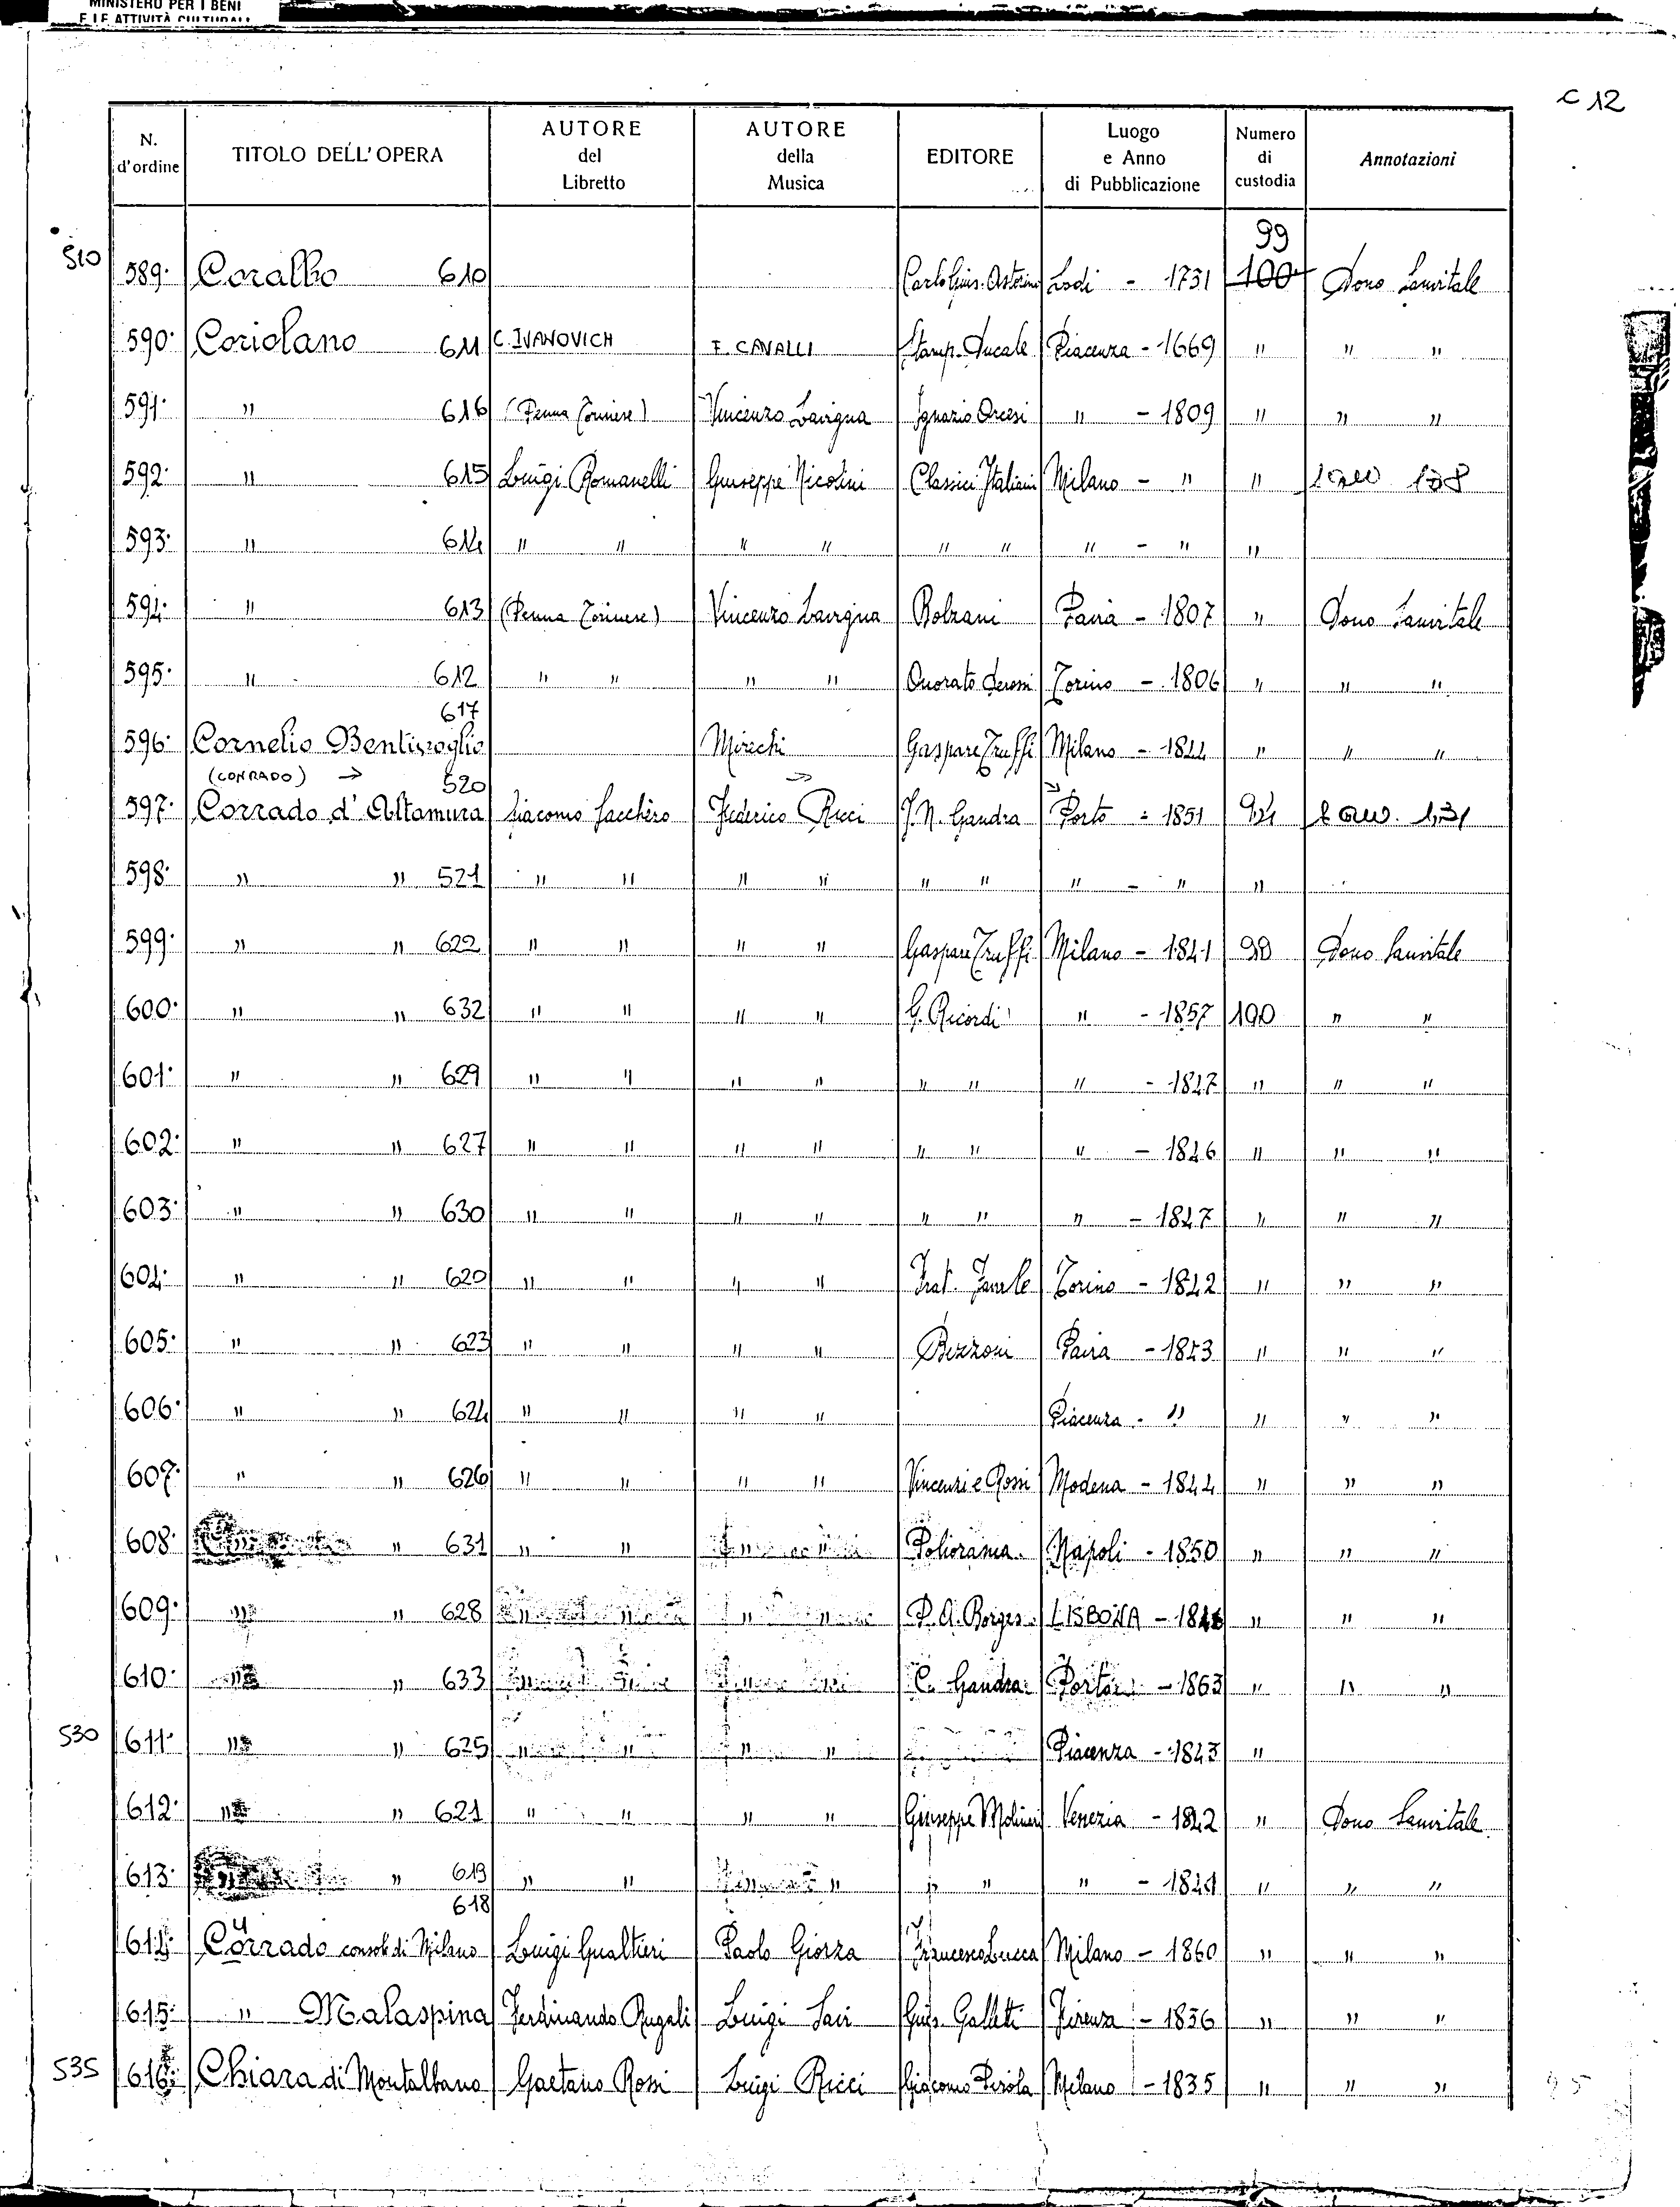 MINISTERO PER I BENI
E LE ATTIVITÀ CULTURALI
C 12
N. d'ordine TITOLO DELL'OPERA AUTORE del Libretto AUTORE della Musica EDITORE Luogo e Anno di Pubblicazione Numero di custodia Annotazioni
99
510 589. Coralbo 610 Lodi - 1731 100 Dono Sanvitale
590. Coriolano 611 C. IVANOVICH F. CAVALLI Stamp. Ducale Piacenza - 1669 " " "
591. " 616 (Penna Torinese) Vincenzo Lavigna Ignazio Orcesi " - 1809 " " "
592. " 615 Luigi Romanelli Giuseppe Nicolini Classici Italiani Milano - " "
593. " 614 " " " " " " " - " "
594. " 613 (Penna Torinese) Vincenzo Lavigna Bolzani Pavia - 1807 " Dono Sanvitale
595. " 612 " " " " Onorato Derossi Torino - 1806 " " "
617
596. Cornelio Bentivoglio Mirecki Gaspare Truffi Milano - 1844 " " "
(CONRADO) → 520
597. Corrado d'Altamura Giacomo Sacchèro Federico Ricci J. N. Gandra Porto - 1851 94
598. " " 521 " " " " " " " - " "
599. " " 622 " " " " Gaspare Truffi Milano - 1841 98 Dono Sanvitale
600. " " 632 " " " " G. Ricordi " - 1857 100 " "
601. " " 629 " " " " " " " - 1847 " " "
602. " " 627 " " " " " " " - 1846 " " "
603. " " 630 " " " " " " " - 1847 " " "
604. " " 620 " " " " Frat. Favale Torino - 1842 " " "
605. " " 623 " " " " Bizzoni Pavia - 1843 " " "
606. " " 624 " " " " Piacenza - " " " "
607. " " 626 " " " " Vincenzi e Rossi Modena - 1844 " " "
608. " 631 " " Poliorama Napoli - 1850 " " "
609. " " 628 " " " " P. A. Borges LISBONA - 1846 " " "
610. " " 633 C. Gandra Porto - 1863 " " "
530 611. " " 625 " " " " Piacenza - 1843 "
612. " " 621 " " " " Giuseppe Molinari Venezia - 1842 " Dono Sanvitale
613. " 619 " " " " " " - 1841 " " "
618
614. Corrado console di Milano Luigi Gualtieri Paolo Giorza Francesco Lucca Milano - 1860 " " "
615. " Malaspina Ferdinando Rugali Luigi Savi Gius. Galletti Firenze - 1836 " " "
535 616. Chiara di Montalbano Gaetano Rossi Luigi Ricci Giacomo Pirola Milano - 1835 " " "